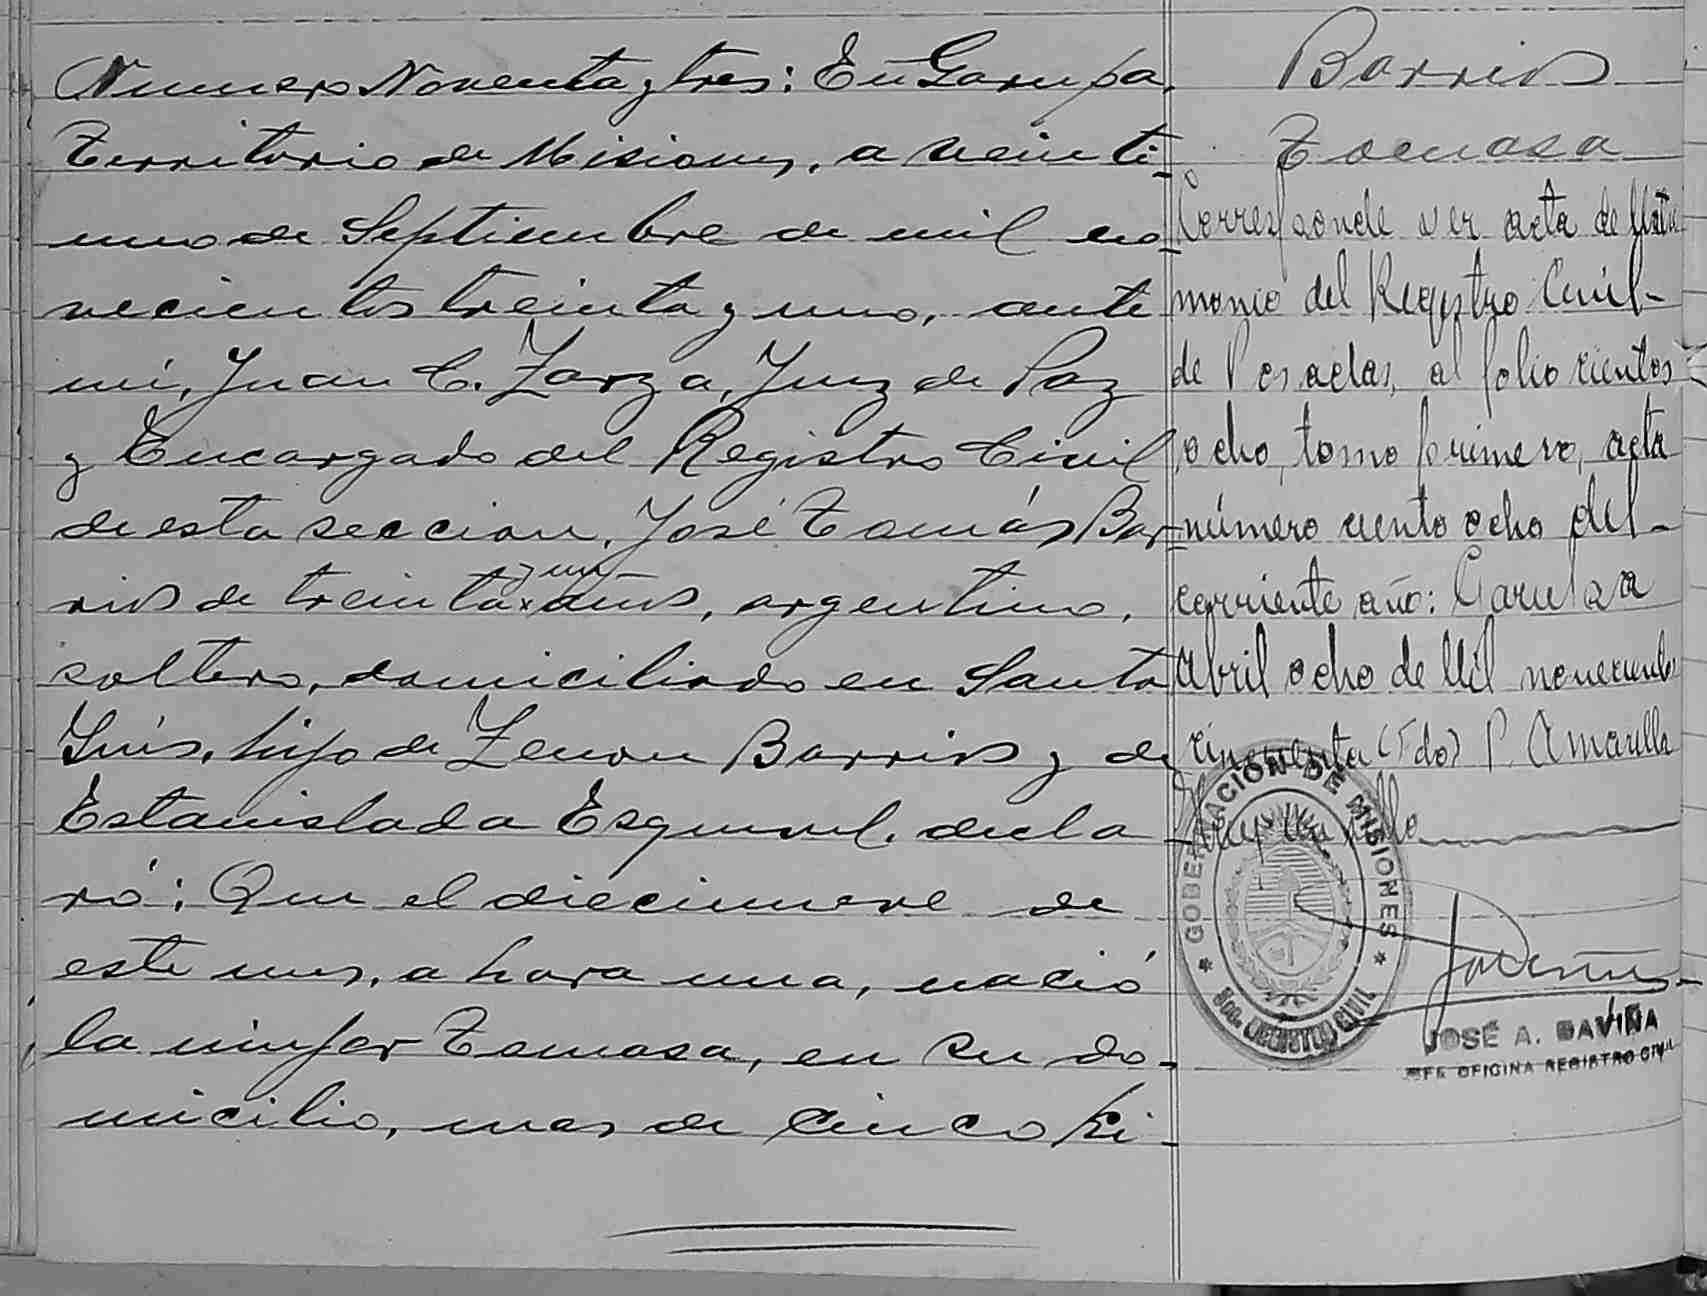 Numero Noventa y tres: En Garupa,
Territorio de Misiones, a veinti-
uno de Septiembre de mil no-
vecientos treinta y uno, ante
mi, Juan C. Zarza, Juez de Paz
y Encargado del Registro Civil
de esta seccion, José Tomás Bar-
rios de treinta y un años, argentino,
soltero, domiciliado en Santa
Inés, hijo de Zenon Barrios y de
Estanislada Esquivel, decla
ró: Que el diecinueve de
este mes, a hora una, nació
la mujer Tomasa, en su do-
micilio, mas de cinco ki-
Barrios
Tomasa
Corresponde ver acta de Matri
monio del Registro Civil-
de Posadas, al folio cientos
ocho, tomo primero, acta
número ciento ocho del-
corriente año: Garupa
Abril ocho de Mil novecientos
cincuenta (Fdo) P. Amarilla
GOBERNACIÓN DE MISIONES
REGISTRO CIVIL
JOSÉ A. DAVIÑA
JEFE OFICINA REGISTRO CIVIL